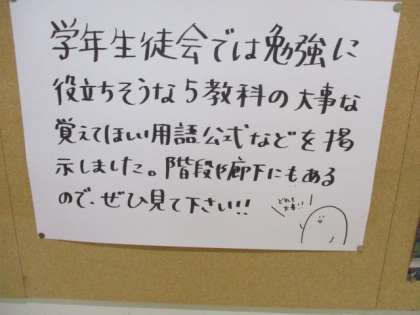 学年生徒会では勉強に
役立ちそうな5教科の大事な
覚えてほしい用語公式などを掲
示しました。階段や廊下にもある
ので、ぜひ見て下さい!!
どれも
大事!!